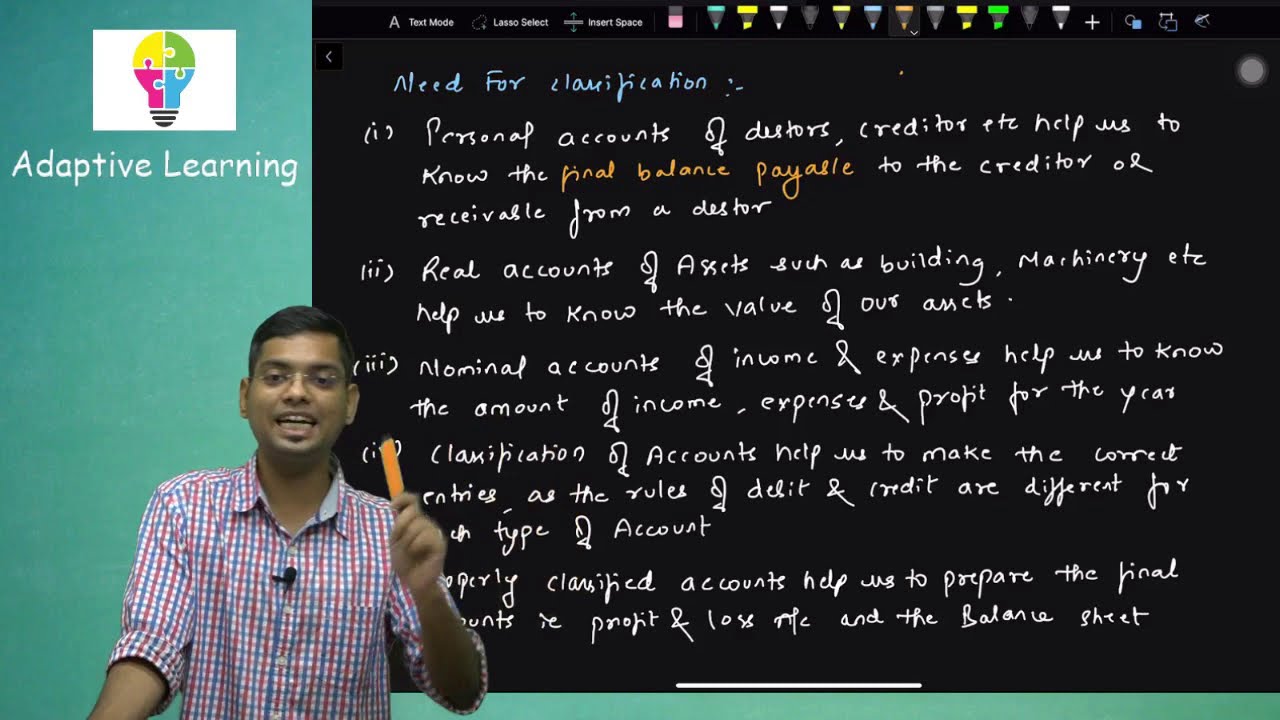 Text Mode
Lasso Select
Insert Space
Adaptive Learning
Need For classification :-
(i) Personal accounts of debtors, creditor etc help us to
know the final balance payable to the creditor or
receivable from a debtor
(ii) Real accounts of Assets such as building, Machinery etc
help us to know the value of our assets.
(iii) Nominal accounts of income & expenses help us to know
the amount of income, expenses & profit for the year
classification of Accounts help us to make the correct
entries, as the rules of debit & credit are different for
type of Account
classified accounts help us to prepare the final
ie profit & loss A/c and the Balance sheet